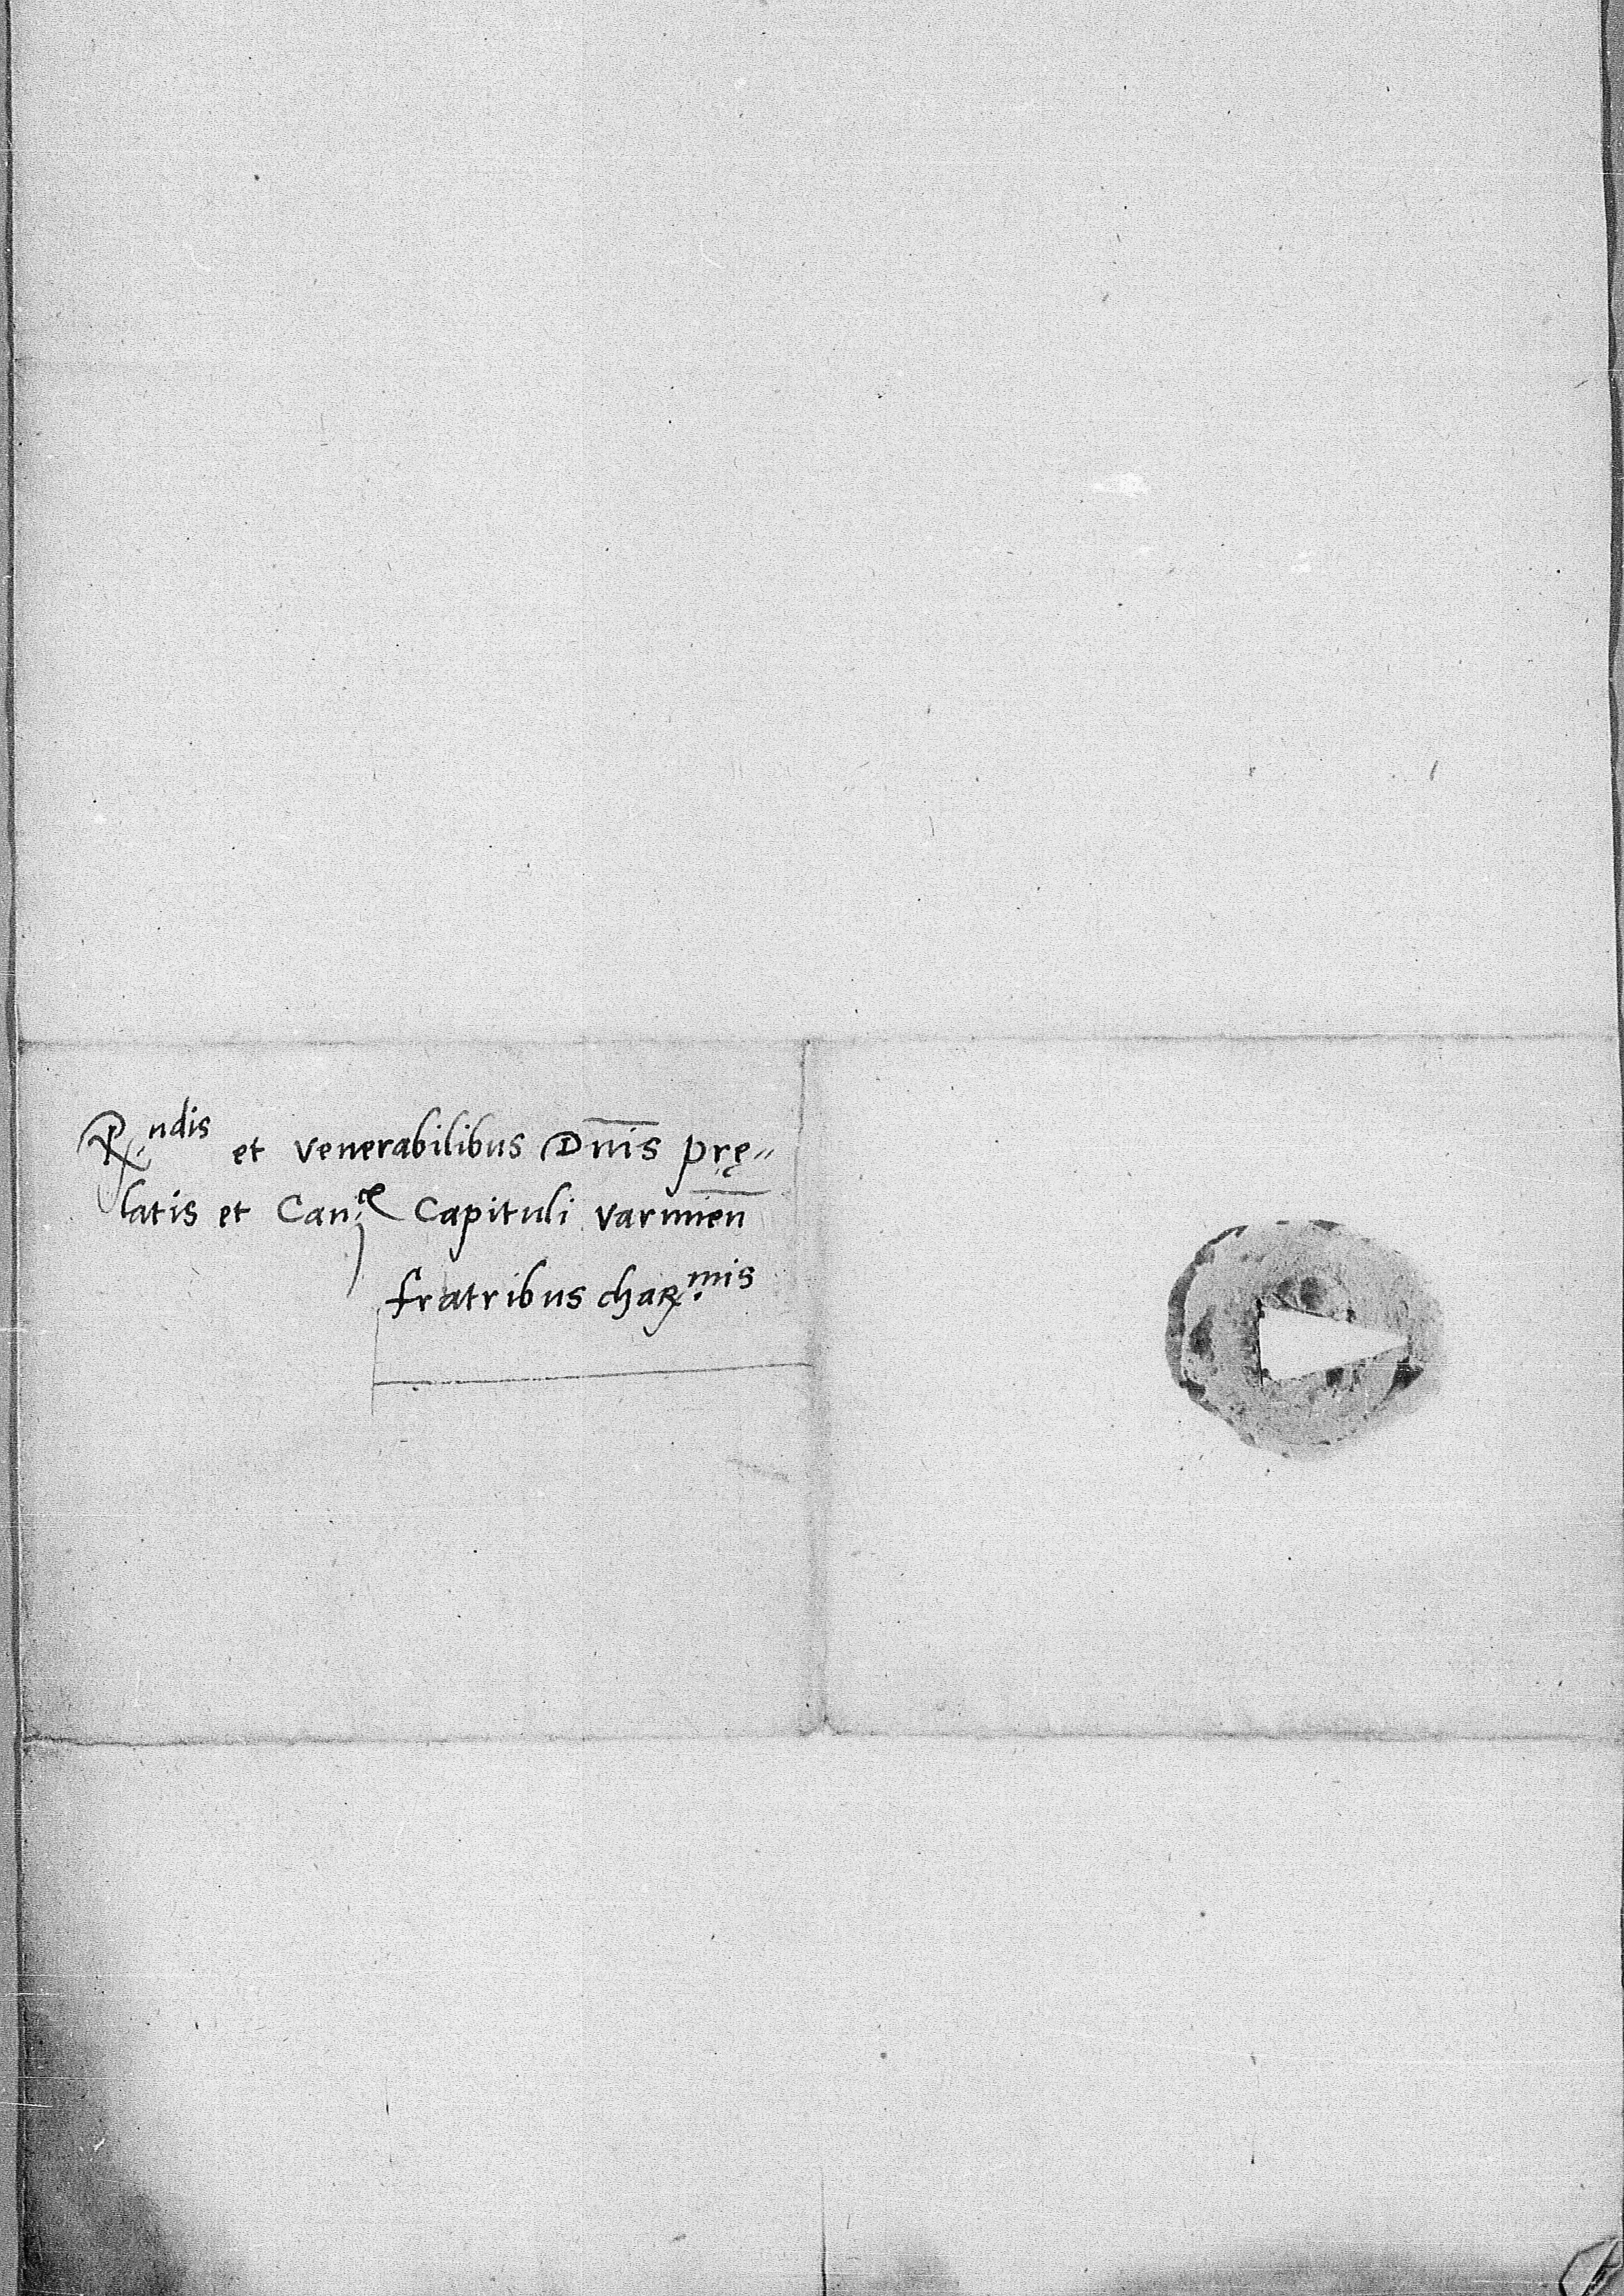 R.ndis et venerabilibus Dn̄is prę-
latis et Can.cis Capituli varmien̄
fratribus char.mis